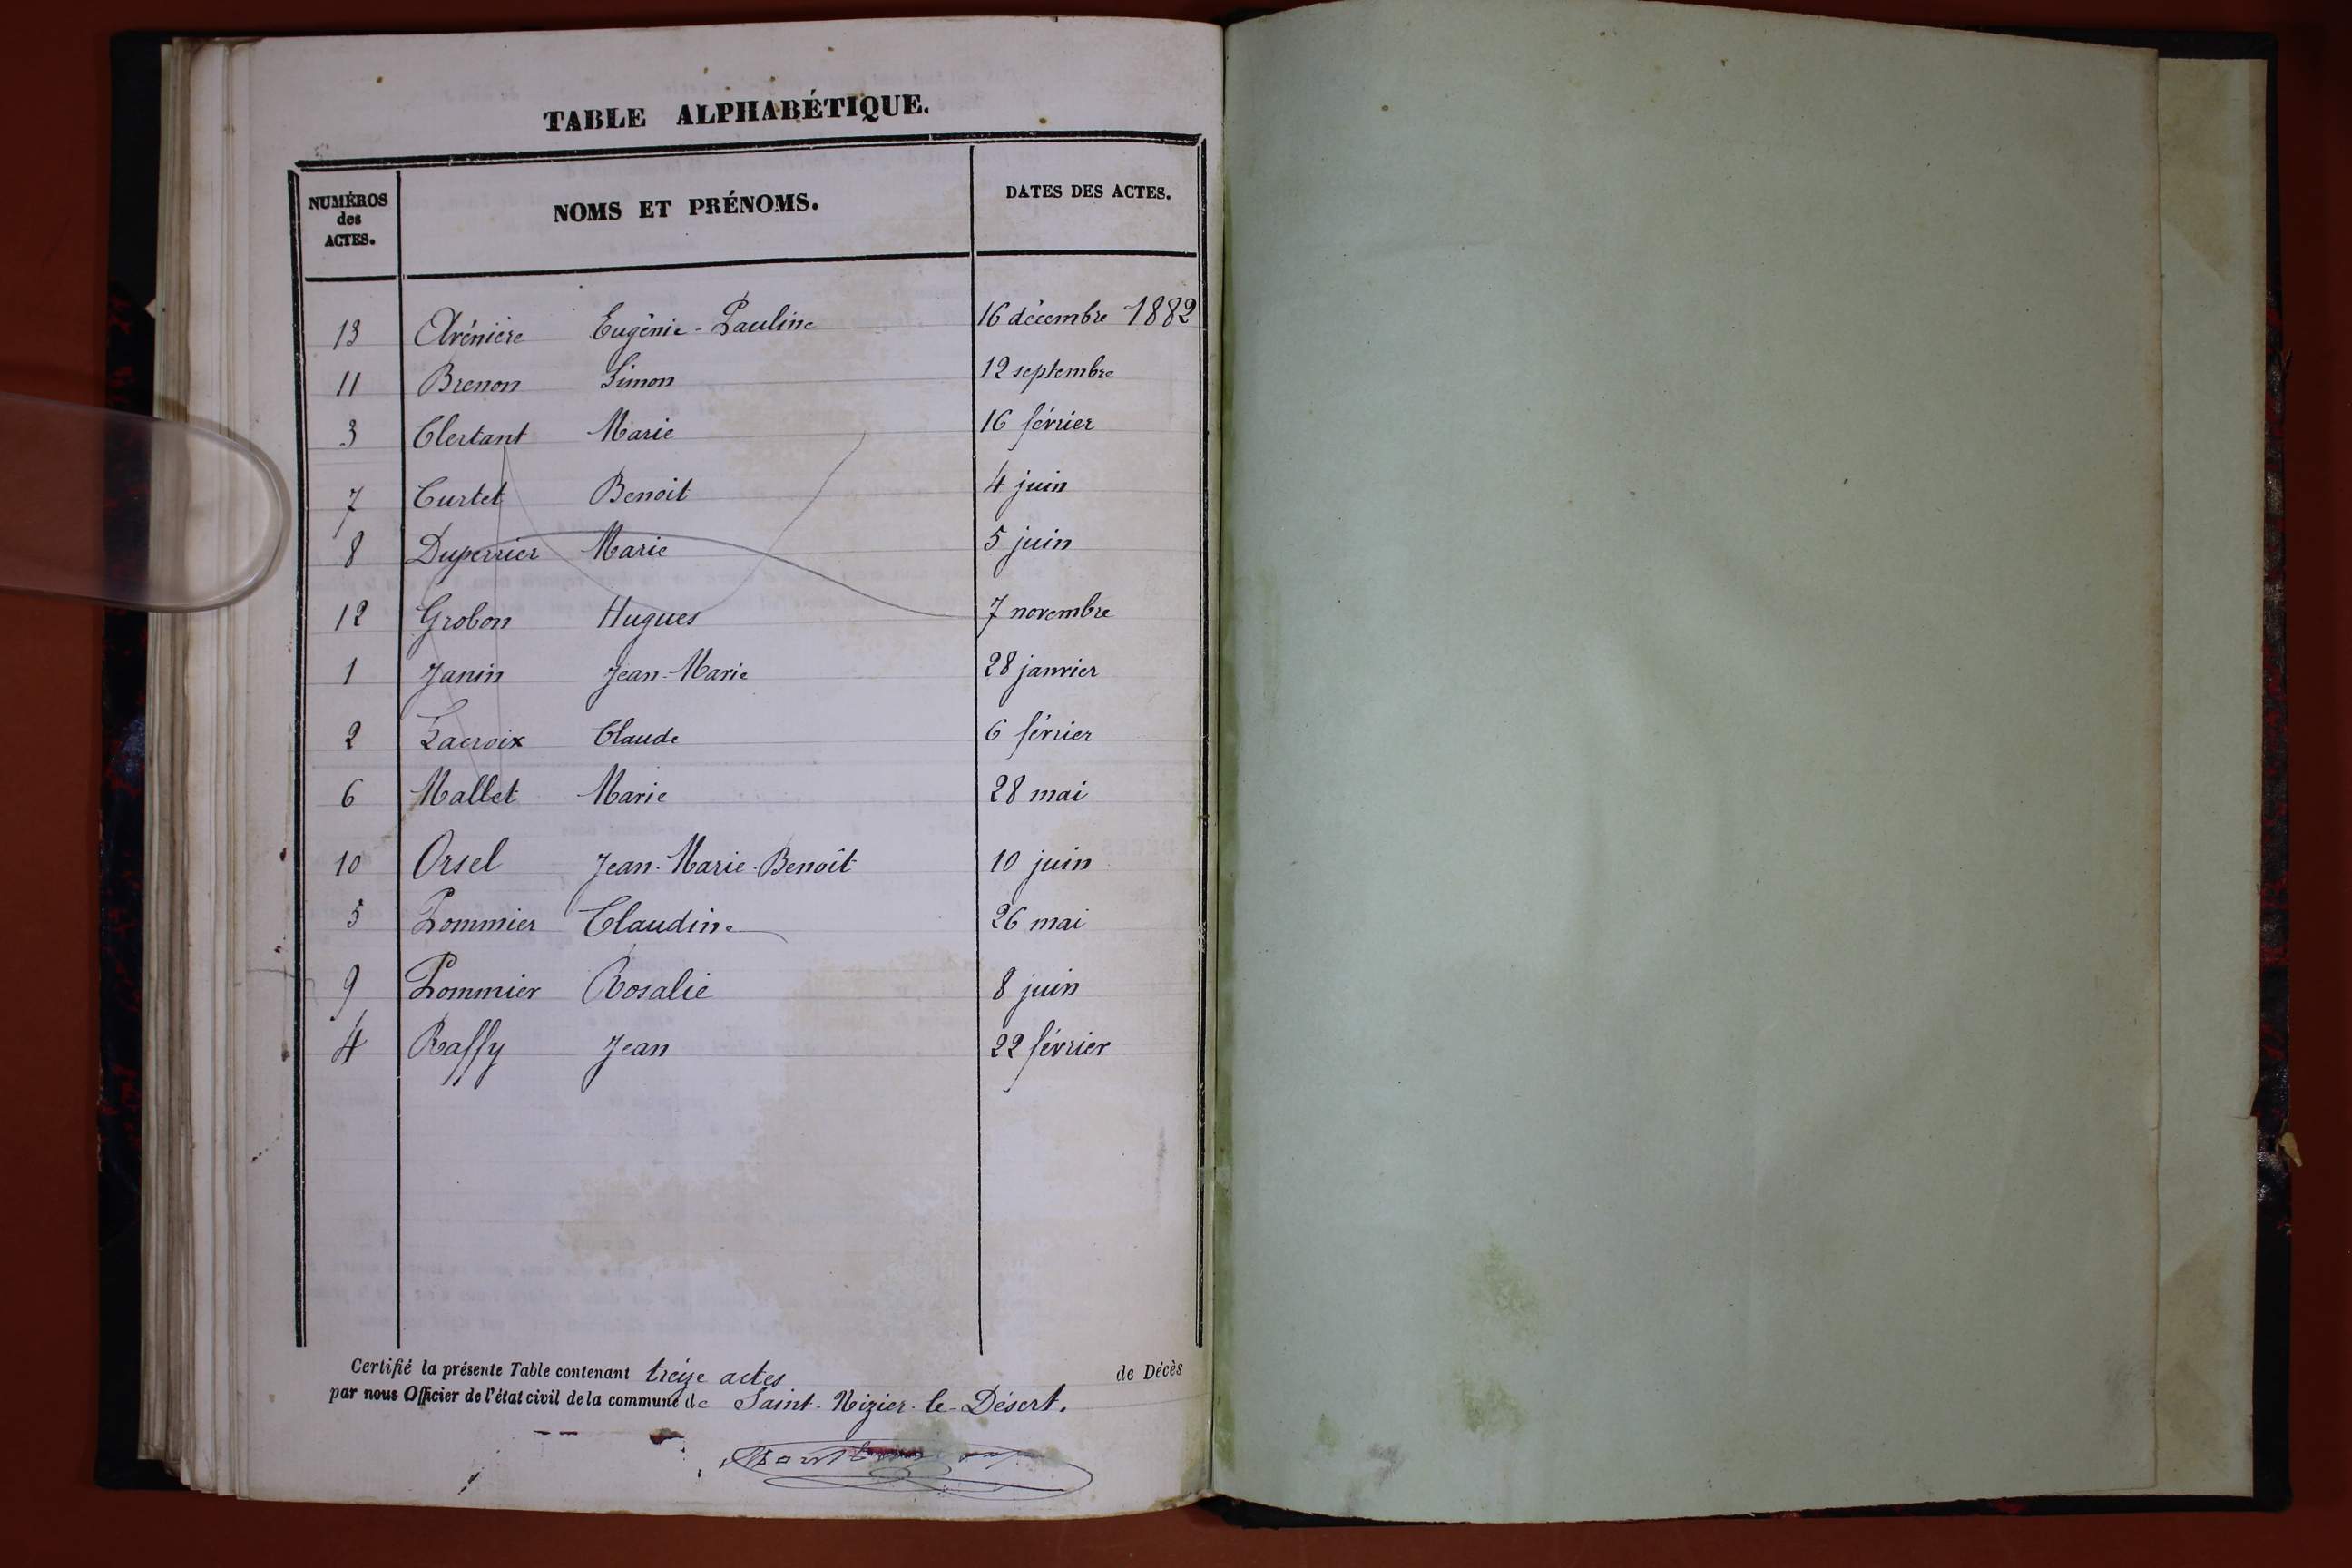 TABLE ALPHABÉTIQUE.
NUMÉROS des ACTES. NOMS ET PRÉNOMS. DATES DES ACTES.
13 Avénière Eugénie-Pauline 16 décembre 1882
11 Brenon Simon 12 septembre
3 Clertant Marie 16 février
7 Curtet Benoit 4 juin
8 Duperrier Marie 5 juin
12 Grobon Hugues 7 novembre
1 Janin Jean-Marie 28 janvier
2 Lacroix Claude 6 février
6 Mallet Marie 28 mai
10 Orsel Jean-Marie-Benoît 10 juin
5 Pommier Claudine 26 mai
9 Pommier Rosalie 8 juin
4 Raffy Jean 22 février
Certifié la présente Table contenant treize actes de Décès
par nous Officier de l'état civil de la commune de Saint-Nizier-le-Désert.